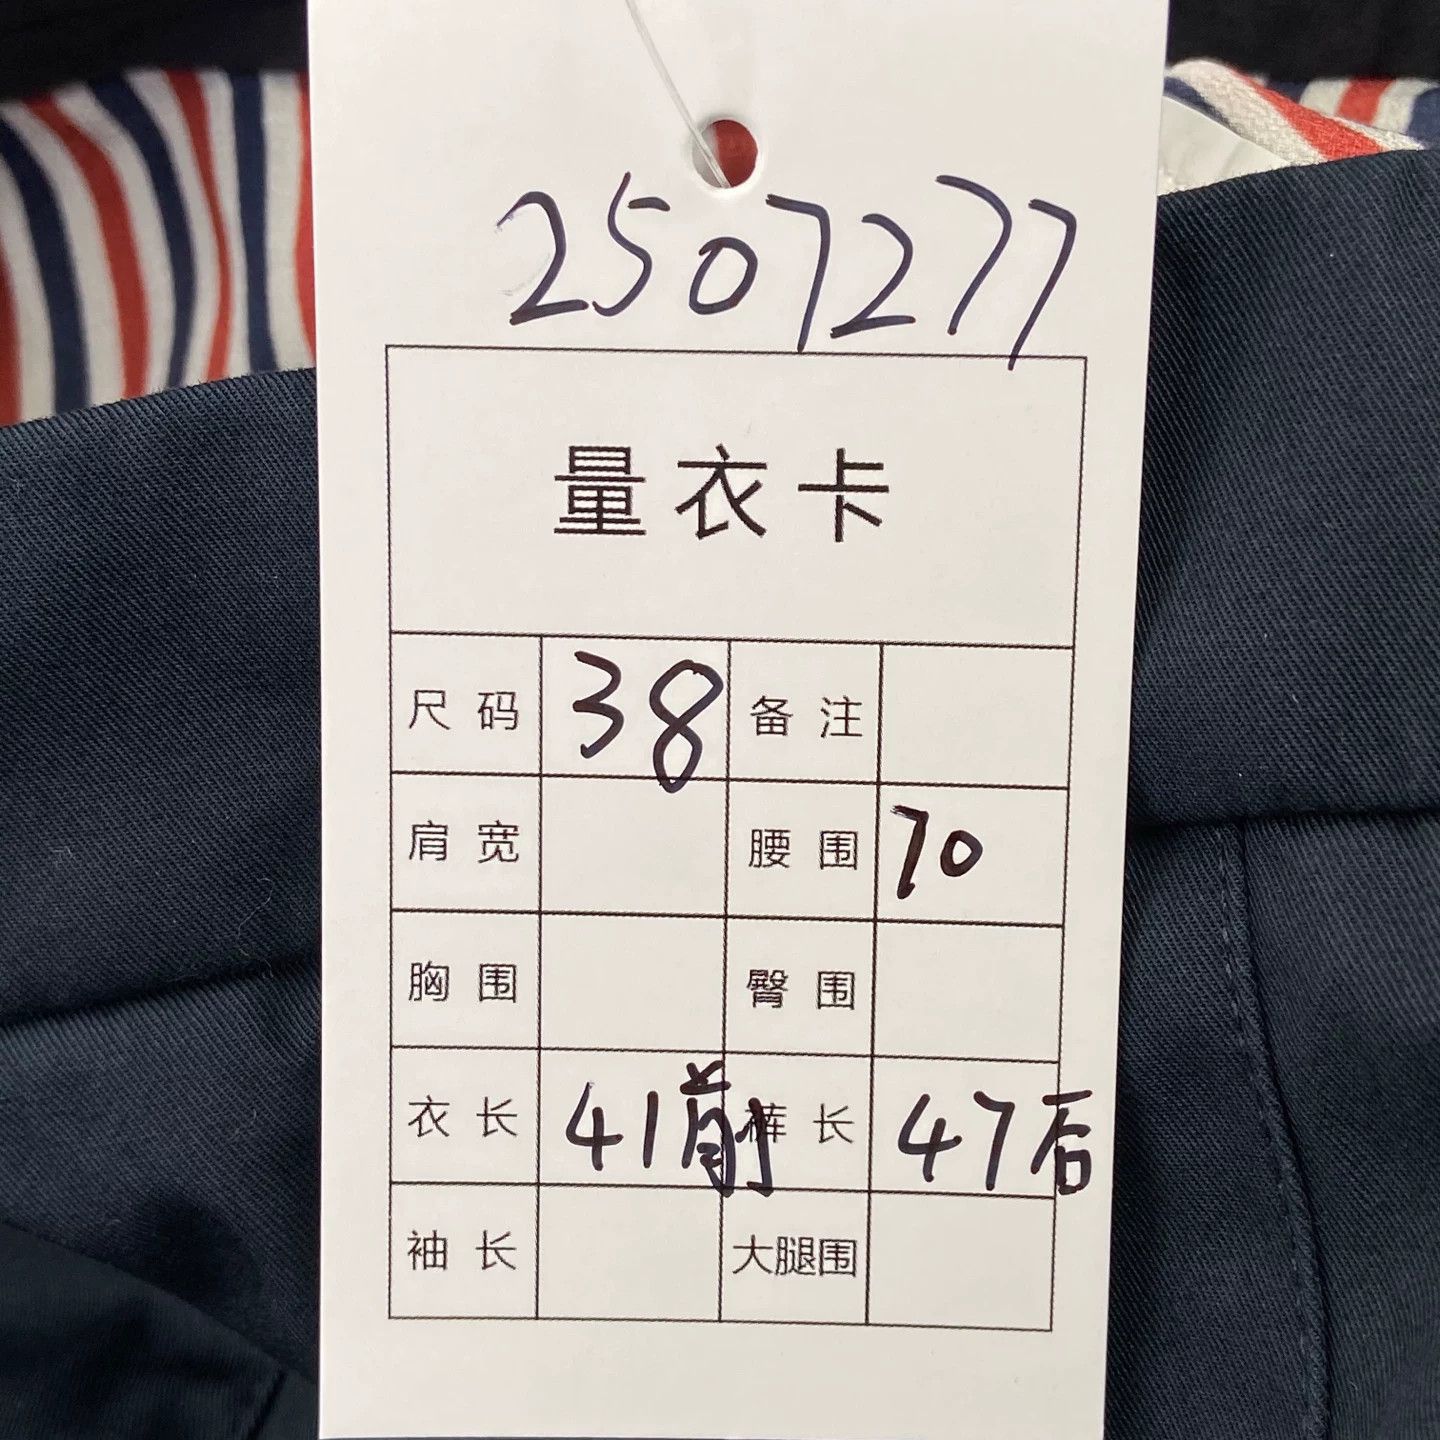 2507277
量衣卡
尺码 38 备注
肩宽 腰围 70
胸围 臀围
衣长 41前 裤长 47后
袖长 大腿围